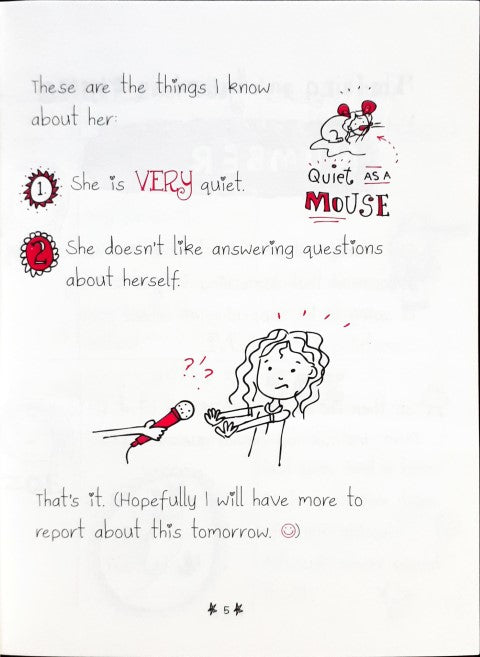 These are the things I know
about her:
Quiet AS A
MOUSE
1. She is VERY quiet.
2 She doesn't like answering questions
about herself.
???
That's it. (Hopefully I will have more to
report about this tomorrow. ☺)
5